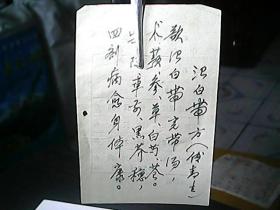 治白带方（傅青主）
歌治白带完带汤，
术 参、草、白芍、苍。
车前、黑芥穗，
四剂病愈身体康。